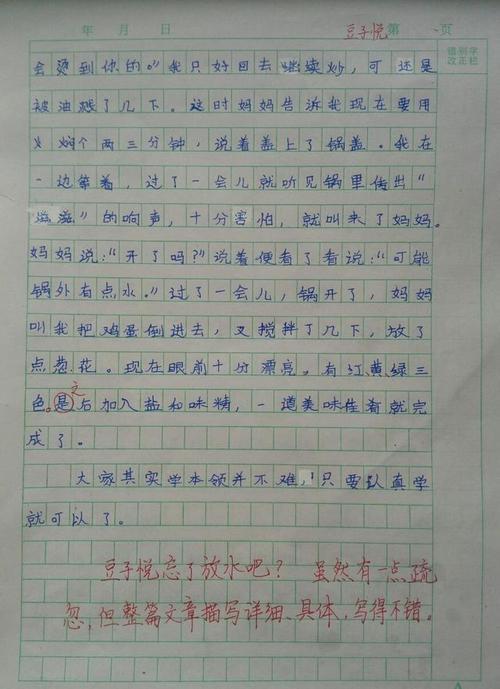 年 月 日 豆子悦 第 页
错别字
改正栏
会烫到你的。"我只好回去继续炒,可还是
被油溅了几下。这时妈妈告诉我现在要用
火焖个两三分钟,说着盖上了锅盖。我在
一边等着,过了一会儿就听见锅里传出"
滋滋"的响声,十分害怕,就叫来了妈妈。
妈妈说:"开了吗?"说着便看了看说:"可能
锅外有点水。"过了一会儿,锅开了,妈妈
叫我把鸡蛋倒进去,又搅拌了几下,放了
点葱花。现在眼前十分漂亮。有红、黄、绿三
色。是之后加入盐和味精,一道美味佳肴就完
成了。
大家其实学本领并不难,只要认真学
就可以了。
豆子悦忘了放水吧? 虽然有一点疏
忽,但整篇文章描写详细、具体,写得不错。